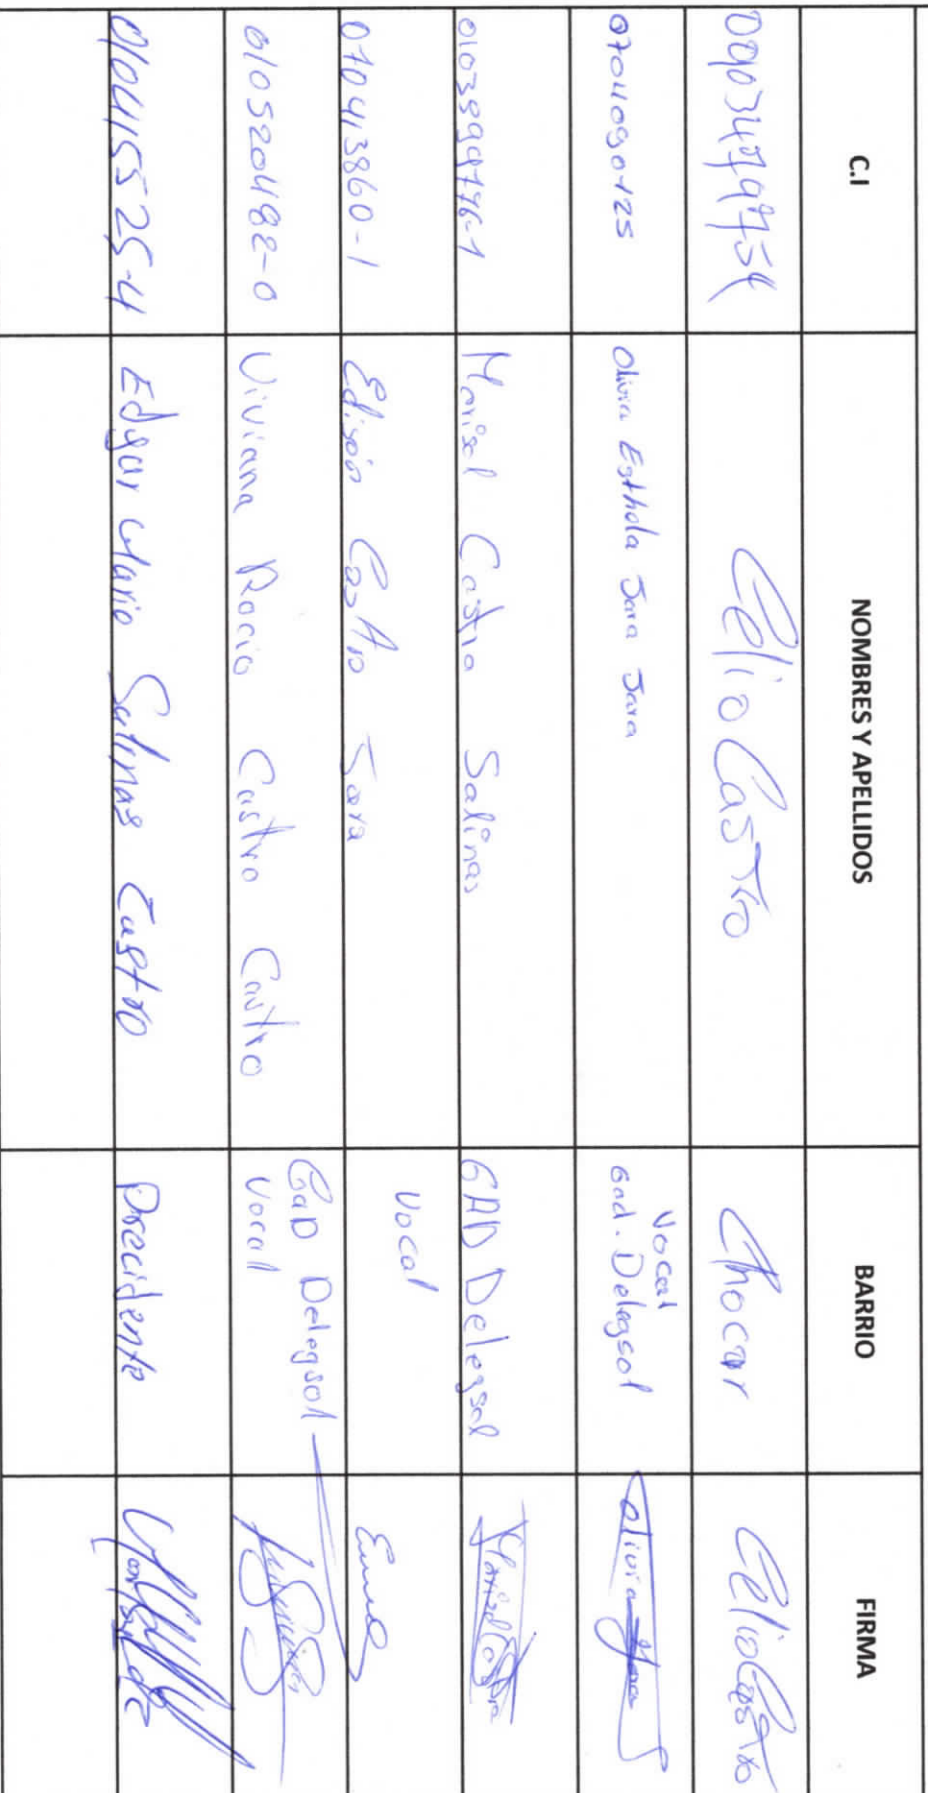 C.I NOMBRES Y APELLIDOS BARRIO FIRMA
Celio Castro Chocar Celio Castro
0704090125 Olivia Esthela Jara Jara Vocal
Gad. Delegsol Olivia Jara
Marisol Castro Salinas GAD Delegsol Marisol Castro
070413860-1 Edisón Castro Jara Vocal
010520482-0 Viviana Rocio Castro Castro GaD Delegsol
Vocal
010415525-4 Edgar Mario Salinas Castro Precidente